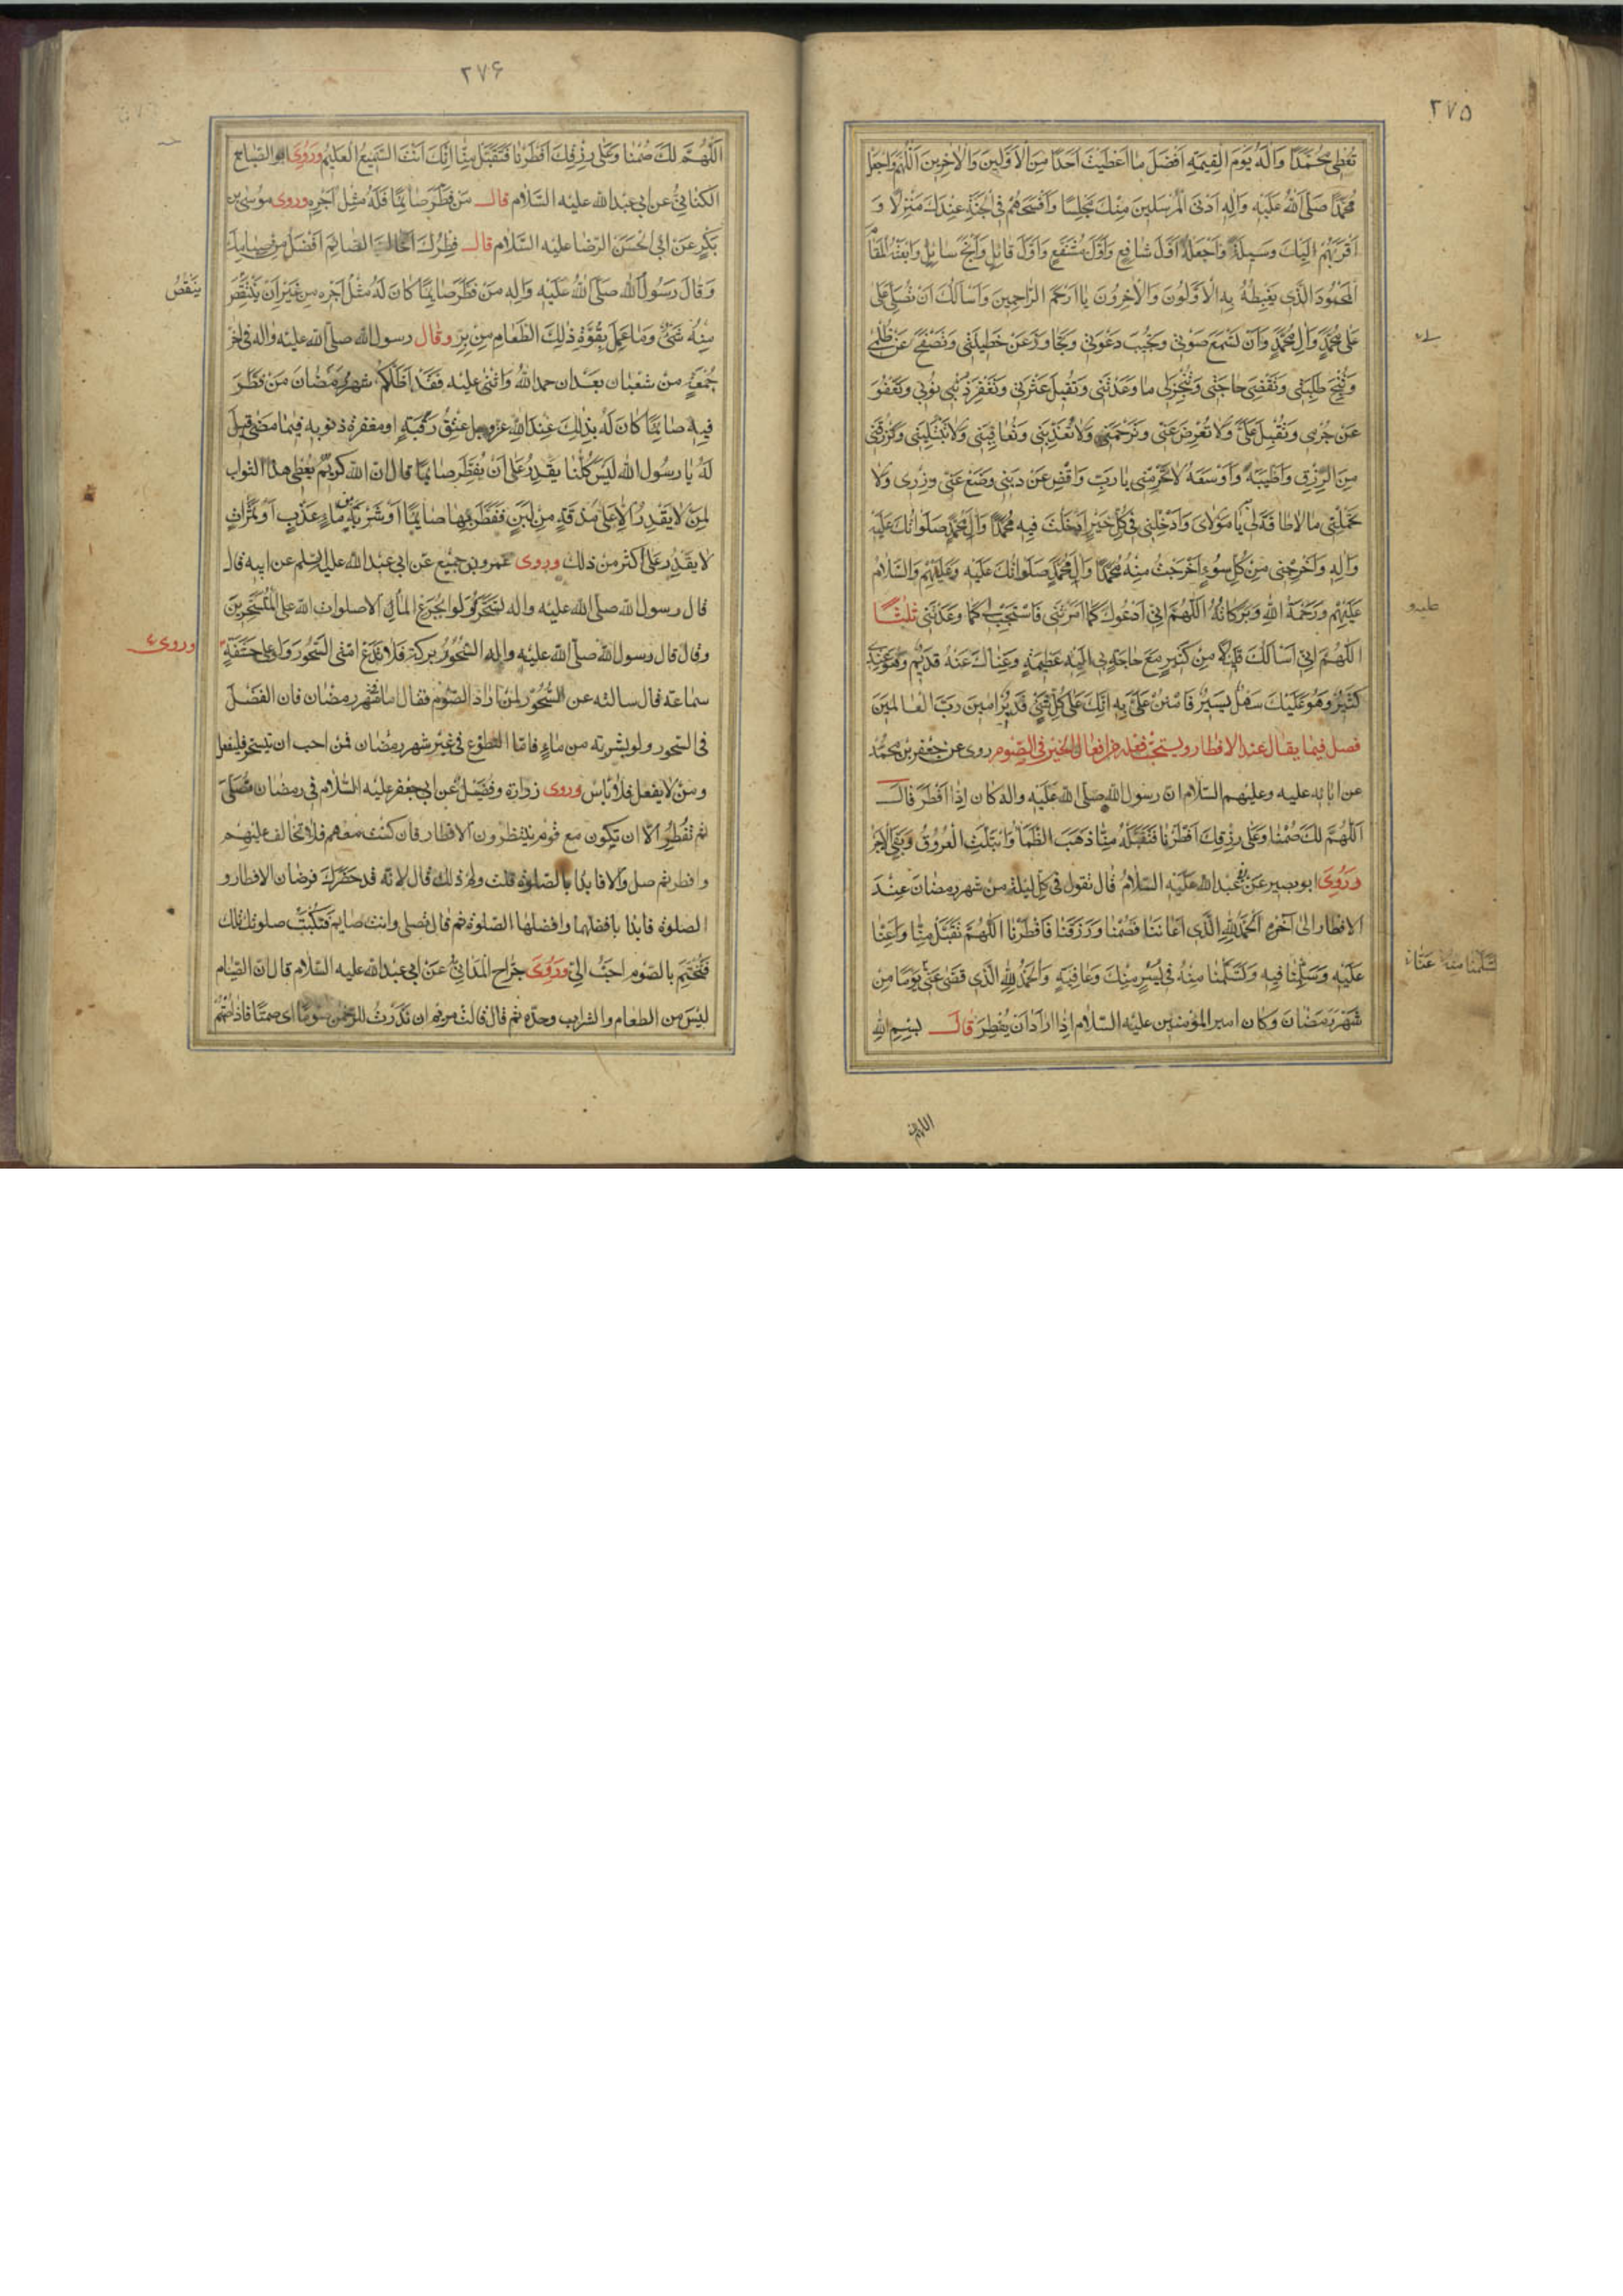 ٢٧۵
تُعْطِىَ مُحَمَّدًا وَآلَهُ يَوْمَ الْقِيٰمَةِ اَفْضَلَ مٰا اَعْطَيْتَ اَحَدًا مِنَ الْاَوَّلِينَ وَالْاٰخِرِينَ اَللّٰهُمَّ وَاجْعَلْ
مُحَمَّدًا صَلَّى اللّٰهُ عَلَيْهِ وَاٰلِهِ اَدْنَى الْمُرْسَلِينَ مِنْكَ مَجْلِسًا وَاَفْسَحَهُمْ فِى الْجَنَّةِ عِنْدَكَ مَنْزِلًا وَ
اَقْرَبَهُمْ اِلَيْكَ وَسِيلَةً وَاجْعَلْهُ اَوَّلَ شٰافِعٍ وَاَوَّلَ مُشَفَّعٍ وَاَوَّلَ قٰائِلٍ وَاَنْجَحَ سٰائِلٍ وَابْعَثْهُ الْمَقٰامَ
الْمَحْمُودَ الَّذِى يَغْبِطُهُ بِهِ الْاَوَّلُونَ وَالْاٰخِرُونَ يٰا اَرْحَمَ الرّٰاحِمِينَ وَاَسْاَلُكَ اَنْ تُصَلِّىَ عَلٰى
عَلٰى مُحَمَّدٍ وَاٰلِ مُحَمَّدٍ وَاَنْ تَسْمَعَ صَوْتِى وَتُجِيبَ دَعْوَتِى وَتَجٰاوَزَ عَنْ خَطِيئَتِى وَتَصْفَحَ عَنْ ظُلْمِى
وَتُنْجِحَ طَلِبَتِى وَتَقْضِىَ حٰاجَتِى وَتُنْجِزَ لِى مٰا وَعَدْتَنِى وَتُقِيلَ عَثْرَتِى وَتَغْفِرَ ذُنُوبِى وَتَعْفُوَ
عَنْ جُرْمِى وَتُقْبِلَ عَلَىَّ وَلٰا تُعْرِضَ عَنِّى وَتَرْحَمَنِى وَلٰا تُعَذِّبَنِى وَتُعٰافِيَنِى وَلٰا تَبْتَلِيَنِى وَتَرْزُقَنِى
مِنَ الرِّزْقِ وَاَطْيَبَهُ وَاَوْسَعَهُ لٰا تَحْرِمْنِى يٰا رَبِّ وَاقْضِ عَنِّى دَيْنِى وَضَعْ عَنِّى وِزْرِى وَلٰا
تُحَمِّلْنِى مٰا لٰا طٰاقَةَ لِى يٰا مَوْلٰاىَ وَاَدْخِلْنِى فِى كُلِّ خَيْرٍ اَدْخَلْتَ فِيهِ مُحَمَّدًا وَاٰلَ مُحَمَّدٍ صَلَوٰاتُكَ عَلَيْهِ
وَاٰلِهِ وَاَخْرِجْنِى مِنْ كُلِّ سُوءٍ اَخْرَجْتَ مِنْهُ مُحَمَّدًا وَاٰلَ مُحَمَّدٍ صَلَوٰاتُكَ عَلَيْهِ وَعَلَيْهِمْ وَالسَّلٰامُ
عَلَيْهِمْ وَرَحْمَةُ اللّٰهِ وَبَرَكٰاتُهُ اَللّٰهُمَّ اِنِّى اَدْعُوكَ كَمٰا اَمَرْتَنِى فَاسْتَجِبْ لِى كَمٰا وَعَدْتَنِى ثَلٰثًا
اَللّٰهُمَّ اِنِّى اَسْاَلُكَ قَلِيلًا مِنْ كَثِيرٍ مَعَ حٰاجَةٍ بِى اِلَيْهِ عَظِيمَةٍ وَغِنٰاكَ عَنْهُ قَدِيمٌ وَهُوَ عِنْدِى
كَثِيرٌ وَهُوَ عَلَيْكَ سَهْلٌ يَسِيرٌ فَامْنُنْ عَلَىَّ بِهِ اِنَّكَ عَلٰى كُلِّ شَىْءٍ قَدِيرٌ اٰمِينَ رَبَّ الْعٰالَمِينَ
فصل فيما يقال عند الافطار ويستحب فعله من افعال الخير فى الصوم روى عن جعفر بن محمد
عن ابائه عليه وعليهم السلام ان رسول الله صلى الله عليه واله كان اذا افطر قال
اَللّٰهُمَّ لَكَ صُمْنٰا وَعَلٰى رِزْقِكَ اَفْطَرْنٰا فَتَقَبَّلْهُ مِنّٰا ذَهَبَ الظَّمَأُ وَابْتَلَّتِ الْعُرُوقُ وَبَقِىَ الْاَجْرُ
وَرَوٰى ابو بصير عن ابى عبد الله عليه السلام قال تقول فى كل ليلة من شهر رمضان عند
الافطار الى اخره اَلْحَمْدُ لِلّٰهِ الَّذِى اَعٰانَنٰا فَصُمْنٰا وَرَزَقَنٰا فَاَفْطَرْنٰا اَللّٰهُمَّ تَقَبَّلْ مِنّٰا وَاَعِنّٰا
عَلَيْهِ وَسَلِّمْنٰا فِيهِ وَتَسَلَّمْنٰا مِنْهُ فِى يُسْرٍ مِنْكَ وَعٰافِيَةٍ وَالْحَمْدُ لِلّٰهِ الَّذِى قَضٰى عَنِّى يَوْمًا مِنْ
شَهْرِ رَمَضٰانَ وكان امير المؤمنين عليه السلام اذا اراد ان يفطر قال بِسْمِ اللّٰهِ
اللهم
٢٧۶
اَللّٰهُمَّ لَكَ صُمْنٰا وَعَلٰى رِزْقِكَ اَفْطَرْنٰا فَتَقَبَّلْ مِنّٰا اِنَّكَ اَنْتَ السَّمِيعُ الْعَلِيمُ وَرَوٰى ابو الصباح
الكنانى عن ابى عبد الله عليه السلام قال من فطر صائما فله مثل اجره وروى موسى بن
بكر عن ابى الحسن الرضا عليه السلام قال فطرك اخاك الصايم افضل من صيامك
وقال رسول الله صلى الله عليه واله من فطر صايما كان له مثل اجره من غير ان ينقص
ينقص
منه شىء وما عمل بقوة ذلك الطعام من بر وقال رسول الله صلى الله عليه واله فى اخر
جمعة من شعبان بعد ان حمد الله واثنى عليه فقد اظلكم شهر رمضان من فطر
فيه صايما كان له بذلك عند الله عز وجل عتق رقبة ومغفرة ذنوبه فيما مضى قيل
له يا رسول الله ليس كلنا يقدر على ان يفطر صايما قال ان الله كريم يعطى هذا الثواب
لمن لا يقدر الا على مذقة من لبن ففطر بها صايما او شربة من ماء عذب او تمرات
لا يقدر على اكثر من ذلك وروى عمرو بن جميع عن ابى عبد الله عليه السلم عن ابيه قال
قال رسول الله صلى الله عليه واله تسحروا ولو بجرع الماء الا صلوات الله على المتسحرين
وقال قال رسول الله صلى الله عليه واله السحور بركة فلا تدع امتى السحور ولو على حشفة
وروى
سماعة قال سالته عن السحور لمن اراد الصوم فقال اما شهر رمضان فان الفضل
فى السحور ولو بشربة من ماء فاما التطوع فى غير شهر رمضان فمن احب ان يتسحر فليفعل
ومن لا يفعل فلا باس وروى زرارة وفضيل عن ابى جعفر عليه السلام فى رمضان تصلى
ثم تفطر الا ان تكون مع قوم ينتظرون الافطار فان كنت معهم فلا تخالف عليهم
وافطر ثم صل والا فابدا بالصلوة قلت ولم ذلك قال لانه قد حضرك فرضان الافطار و
الصلوة فابدا بافضلهما وافضلهما الصلوة ثم قال تصلى وانت صايم فتكتب صلوتك تلك
فتختم بالصوم احب الى وروى جراح المداينى عن ابى عبد الله عليه السلام قال ان الصيام
ليس من الطعام والشراب وحده ثم قال قالت مريم انى نذرت للرحمن صوما اى صمتا فاذا صمتم